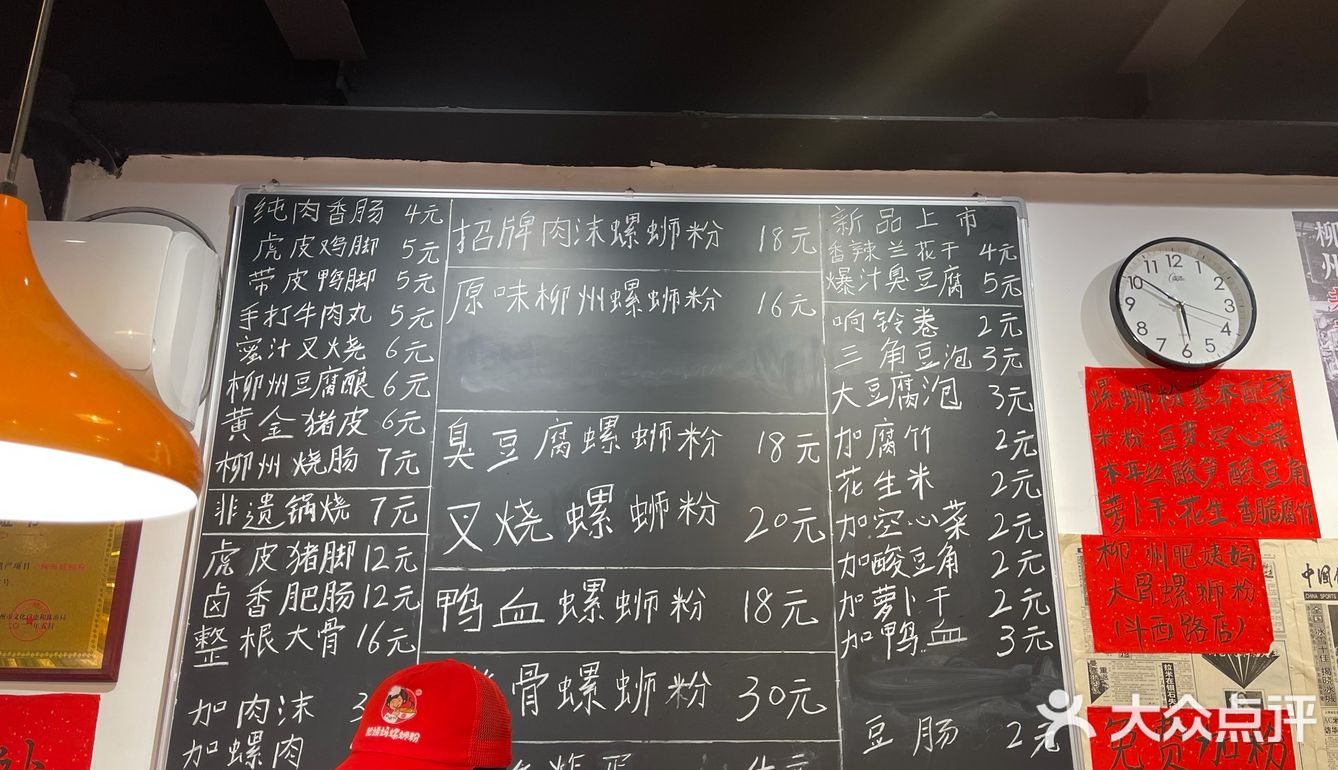 纯肉香肠 4元
虎皮鸡脚 5元
带皮鸭脚 5元
手打牛肉丸 5元
蜜汁叉烧 6元
柳州豆腐酿 6元
黄金猪皮 6元
柳州烧肠 7元
非遗锅烧 7元
虎皮猪脚 12元
卤香肥肠 12元
整根大骨 16元
加肉沫 3
加螺肉
招牌肉沫螺蛳粉 18元
原味柳州螺蛳粉 16元
臭豆腐螺蛳粉 18元
叉烧螺蛳粉 20元
鸭血螺蛳粉 18元
骨螺蛳粉 30元
新品上市
香辣兰花干 4元
爆汁臭豆腐 5元
响铃卷 2元
三角豆泡 3元
大豆腐泡 3元
加腐竹 2元
花生米 2元
加空心菜 2元
加酸豆角 2元
加萝卜干 2元
加鸭血 3元
豆肠 2元
12 1 2 3 4 5 6 7 8 9 10 11
螺蛳粉基本配菜
米粉 豆芽 空心菜
木耳丝 酸笋 酸豆角
萝卜干、花生 香脆腐竹
柳州肥姨妈
大骨螺蛳粉
（斗西路店）
免费加粉
柳州
CHINA SPORTS
大众点评